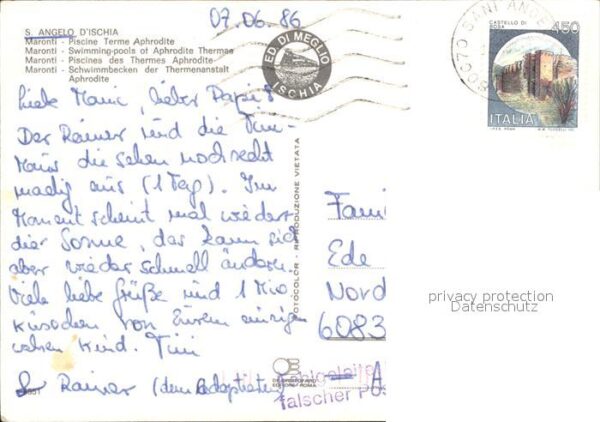 07.06.86
S. ANGELO D'ISCHIA
Maronti - Piscine Terme Aphrodite
Maronti - Swimming-pools of Aphrodite Thermae
Maronti - Piscines des Thermes Aphrodite
Maronti - Schwimmbecken der Thermenanstalt
Aphrodite
ED. DI MEGLIO
ISCHIA
80070 SANT' ANGE
CASTELLO DI
450
ITALIA
Liebe Mami, lieber Papi!
Der Rainer und die Tini-
Maus die sehen noch recht
madig aus (1 Tag). Im
Moment scheint mal wieder
die Sonne, das kann sich
aber wieder schnell ändern.
Viele liebe Grüße und 1 Mio.
Küsschen von Eurem einzigen
Kind. Tini
& Rainer (dem Adoptierten)
FOTOCOLOR - RIPRODUZIONE VIETATA
EDIZIONI ROMA
Fami
Ede
Nord
6083
privacy protection
Datenschutz
falscher Pos